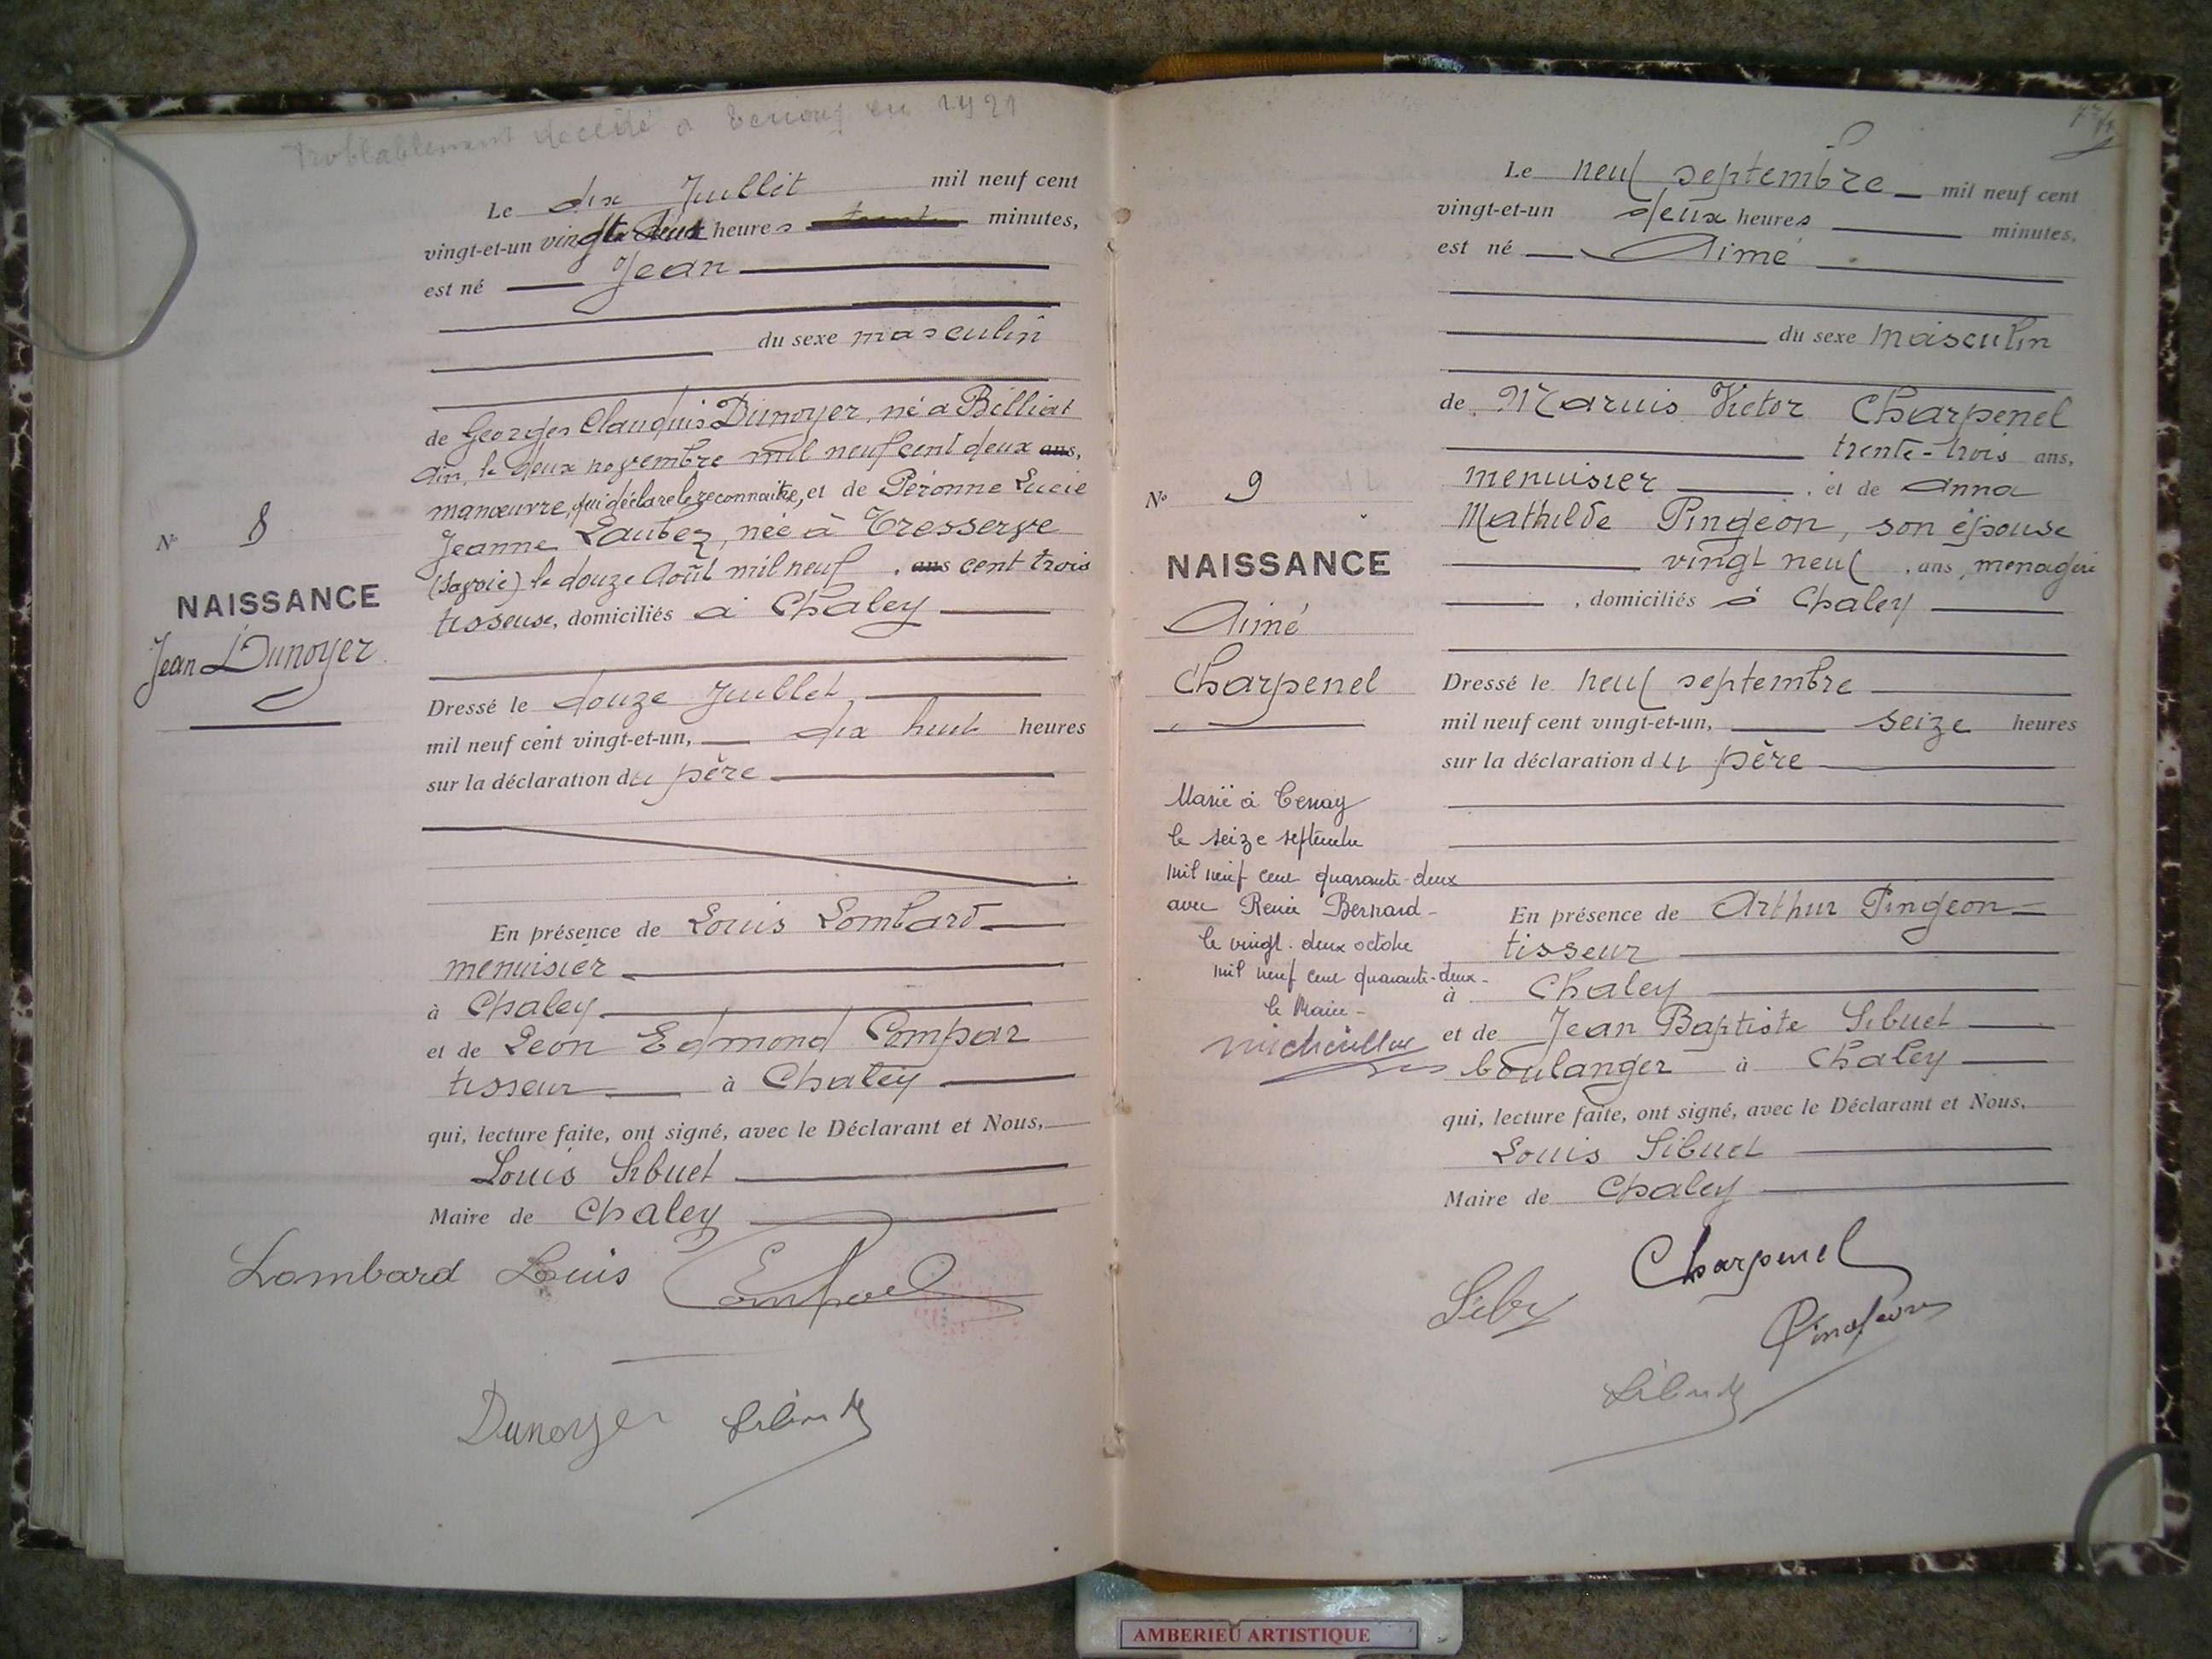 Probablement décédé à en 1921
Le dix Juillet mil neuf cent
vingt-et-un vingt deux heures minutes,
est né Jean
du sexe masculin
de Georges Claudius Dunoyer, né à Billiat
Ain, le deux novembre mil neuf cent deux ans,
manœuvre, qui déclare le reconnaitre, et de Péronne Lucie
Jeanne Laubez, née à Tresserve
(Savoie) le douze Août mil neuf , ans cent trois
tisseuse, domiciliés à Chaley
N° 8
NAISSANCE
Jean Dunoyer
Dressé le douze Juillet
mil neuf cent vingt-et-un, dix huit heures
sur la déclaration du père
En présence de Louis Lombard
menuisier
à Chaley
et de Léon Edmond Compar
tisseur à Chaley
qui, lecture faite, ont signé, avec le Déclarant et Nous,
Louis Sibuet
Maire de Chaley
Lombard Louis
Dunoyer
Le neuf septembre mil neuf cent
vingt-et-un deux heures minutes,
est né Aimé
du sexe masculin
de Maruis Victor Charpenel
trente-trois ans,
menuisier , et de Anna
Mathilde Pingeon, son épouse
vingt neuf , ans, menagère
, domiciliés à Chaley
N° 9
NAISSANCE
Aimé
Charpenel
Dressé le neuf septembre
mil neuf cent vingt-et-un, seize heures
sur la déclaration du père
Marié à Tenay
le seize septembre
mil neuf cent quarante-deux
avec Renée Bernard -
le vingt-deux octobre
mil neuf cent quarante-deux -
le Maire -
En présence de Arthur Pingeon
tisseur
à Chaley
et de Jean Baptiste Sibuet
boulanger à Chaley
qui, lecture faite, ont signé, avec le Déclarant et Nous,
Louis Sibuet
Maire de Chaley
Charpenel
Pingeon
AMBERIEU ARTISTIQUE